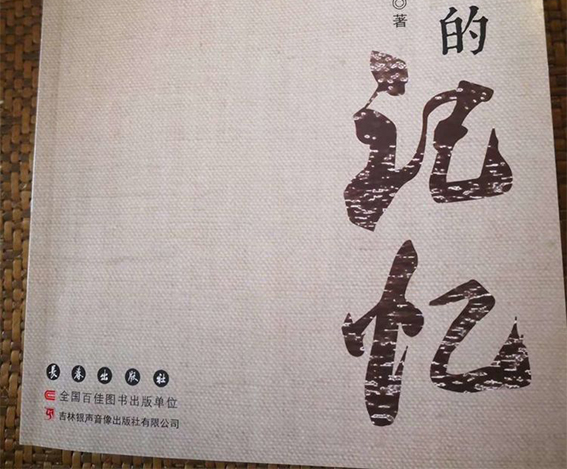 ◎著
的
记忆
长春出版社
全国百佳图书出版单位
吉林银声音像出版社有限公司